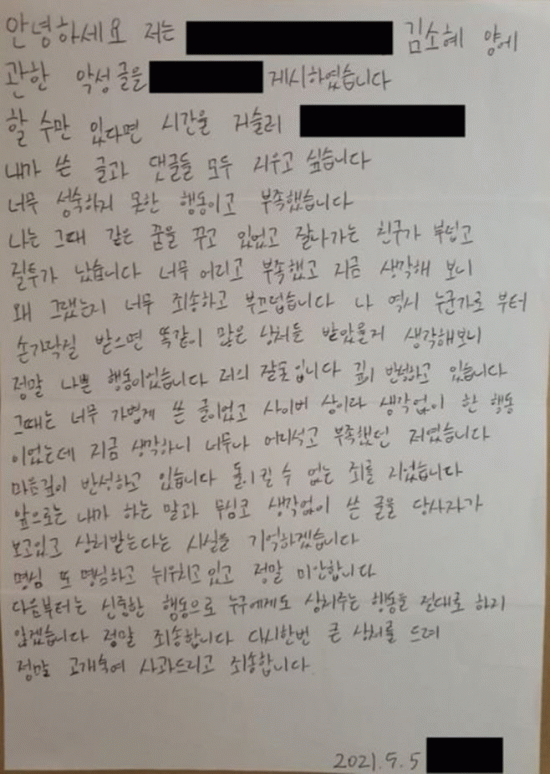 안녕하세요 저는 김소혜 양에
관한 악성글을 게시하였습니다
할 수만 있다면 시간을 거슬러
내가 쓴 글과 댓글들 모두 지우고 싶습니다
너무 성숙하지 못한 행동이고 부족했습니다
나는 그때 같은 꿈을 꾸고 있었고 잘나가는 친구가 부럽고
질투가 났습니다 너무 어리고 부족했고 지금 생각해 보니
왜 그랬는지 너무 죄송하고 부끄럽습니다 나 역시 누군가로 부터
손가락질 받으면 똑같이 많은 상처를 받았을지 생각해보니
정말 나쁜 행동이었습니다 저의 잘못입니다 깊이 반성하고 있습니다
그때는 너무 가볍게 쓴 글이었고 사이버 상이라 생각없이 한 행동
이었는데 지금 생각하니 너무나 어리석고 부족했던 저였습니다
마음깊이 반성하고 있습니다 돌이킬 수 없는 죄를 지었습니다
앞으로는 내가 하는 말과 무심코 생각없이 쓴 글을 당사자가
보고있고 상처받는다는 사실을 기억하겠습니다
명심 또 명심하고 뉘우치고있고 정말 미안합니다
다음부터는 신중한 행동으로 누구에게도 상처주는 행동을 절대로 하지
않겠습니다 정말 죄송합니다 다시한번 큰 상처를 드려
정말 고개숙여 사과드리고 죄송합니다
2021.5.5